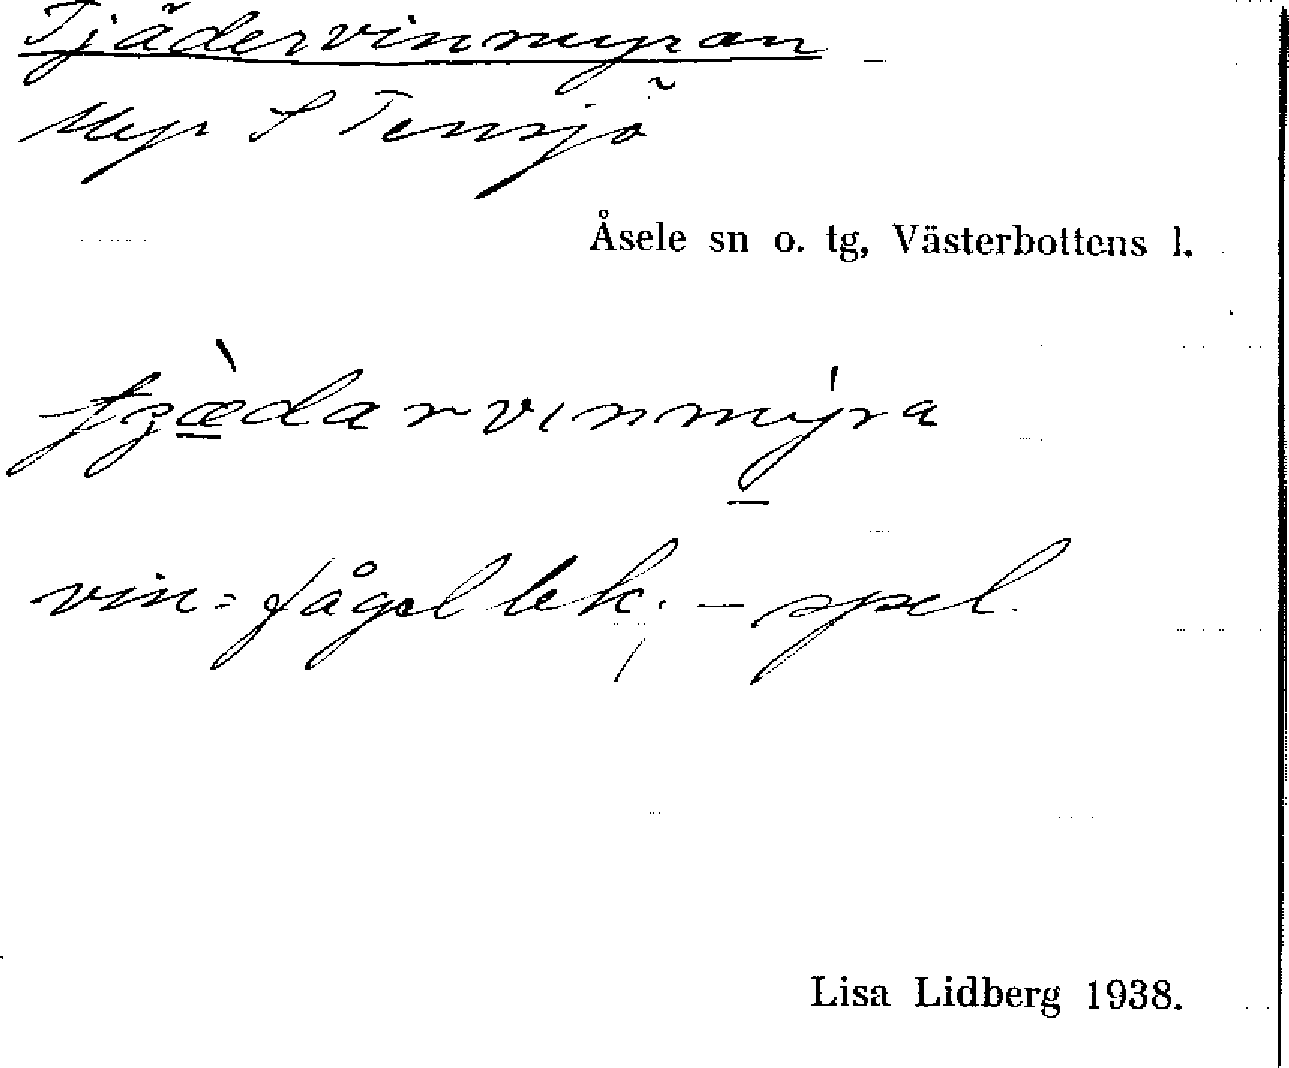 Tjädervinmyran
Myr S Tensjö
Åsele sn o. tg, Västerbottens l.
vin = fågellek; - spel.
Lisa Lidberg 1938.